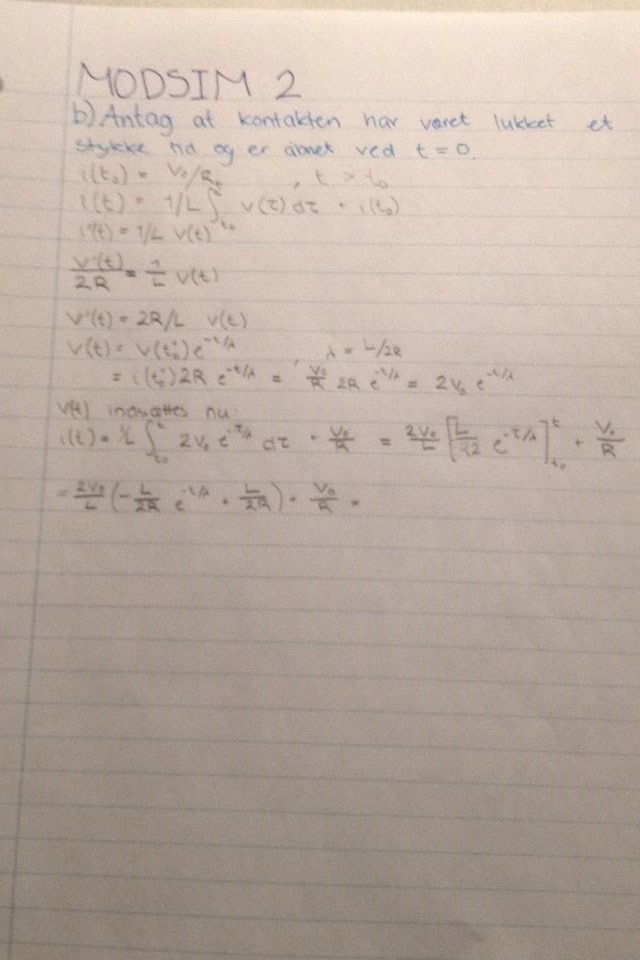 MODSIM 2
b) Antag at kontakten har været lukket et
stykke tid og er åbnet ved t = 0.
i(t₀) = V₀/R , t > t₀
i(t) = 1/L ∫_{t₀}^{t} v(τ) dτ + i(t₀)
i'(t) = 1/L v(t)
V'(t)/2R = 1/L v(t)
V'(t) = 2R/L v(t)
V(t) = V(t₀⁺) e^{-t/λ} , λ = L/2R
= i(t₀⁺) 2R e^{-t/λ} = V₀/R 2R e^{-t/λ} = 2V₀ e^{-t/λ}
V(t) indsættes nu:
i(t) = 1/L ∫_{t₀}^{t} 2V₀ e^{-τ/λ} dτ + V₀/R = 2V₀/L [ L/R2 e^{-τ/λ} ]_{t₀}^{t} + V₀/R
= 2V₀/L (-L/2R e^{-t/λ} + L/2R) + V₀/R =